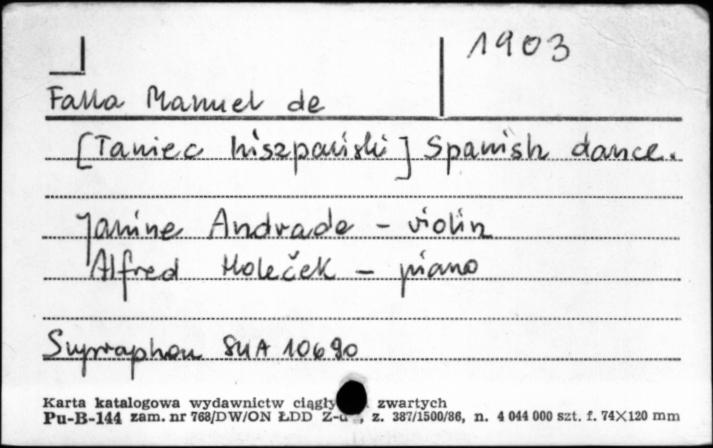 1903
Falla Manuel de
[Taniec hiszpański] Spanish dance.
Janine Andrade - violin
Alfred Holeček - piano
Supraphon SUA 10690
Karta katalogowa wydawnictw ciągły zwartych
Pu-B-144 zam. nr 768/DW/ON ŁDD Z-d , z. 387/1500/86, n. 4 044 000 szt. f. 74×120 mm